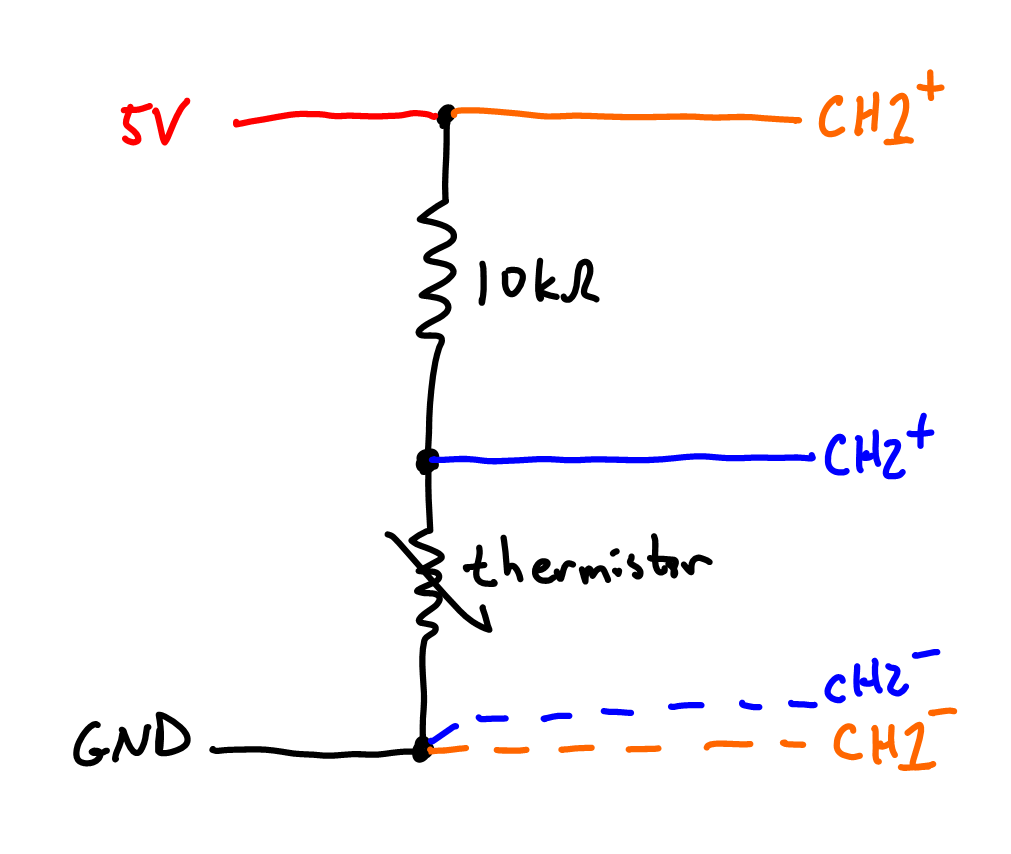 5V
CH1⁺
10kΩ
CH2⁺
thermistor
CH2⁻
GND
CH1⁻